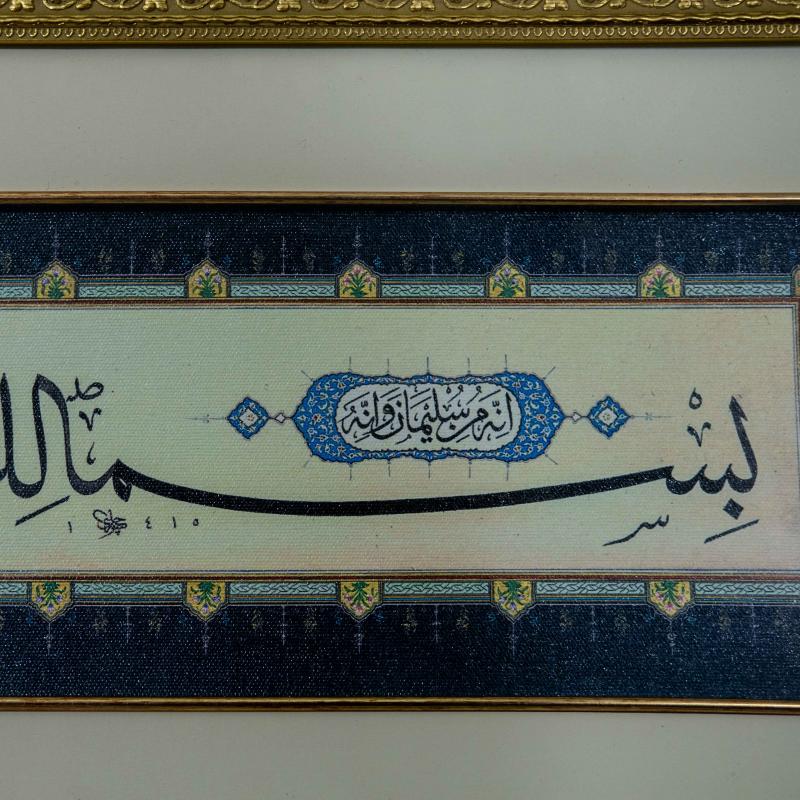 اِنَّهُ مِنْ سُلَيْمَانَ وَاِنَّهُ
بِسْمِ الله
١٤١٥